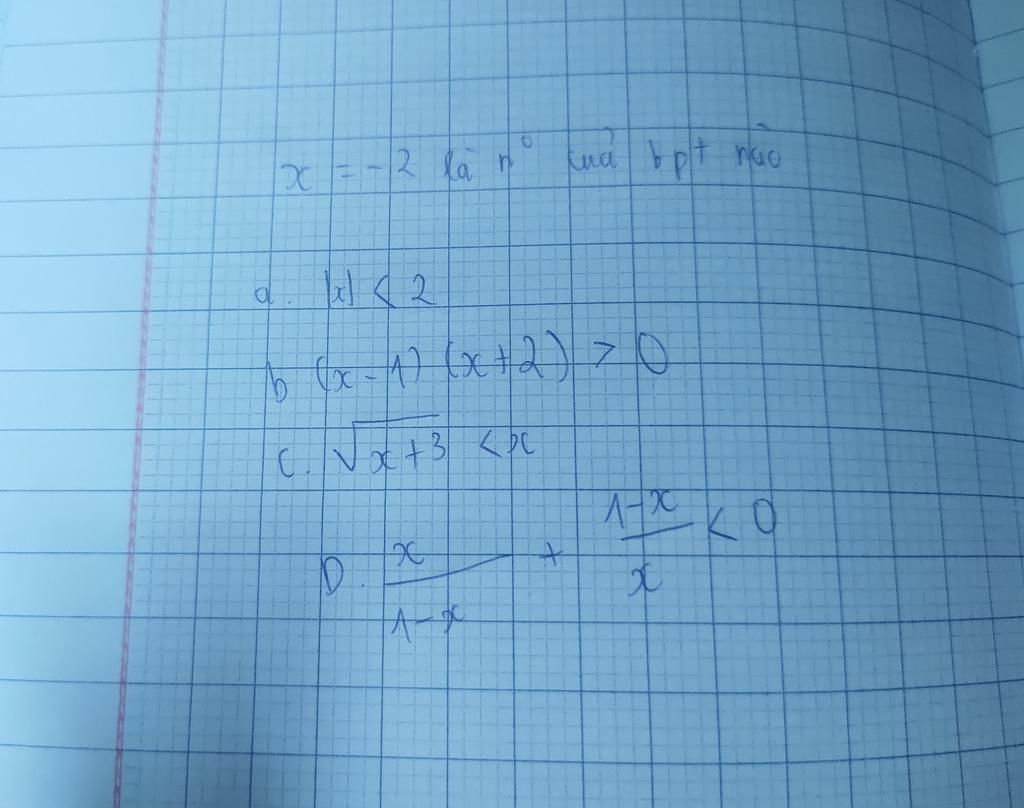 x = -2 là n° của bpt nào
a. |x| < 2
b (x - 1) (x + 2) > 0
c. √(x + 3) < x
D. x/(1-x) + (1-x)/x < 0